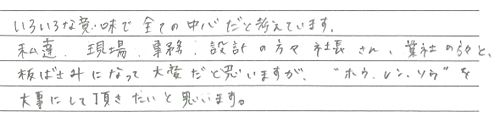 いろいろな意味で全ての中心だと考えています。
私達、現場、事務、設計の方々 社長さん、業社の方々と、
板ばさみになって大変だと思いますが、"ホウ.レン.ソウ"を
大事にして頂きたいと思います。